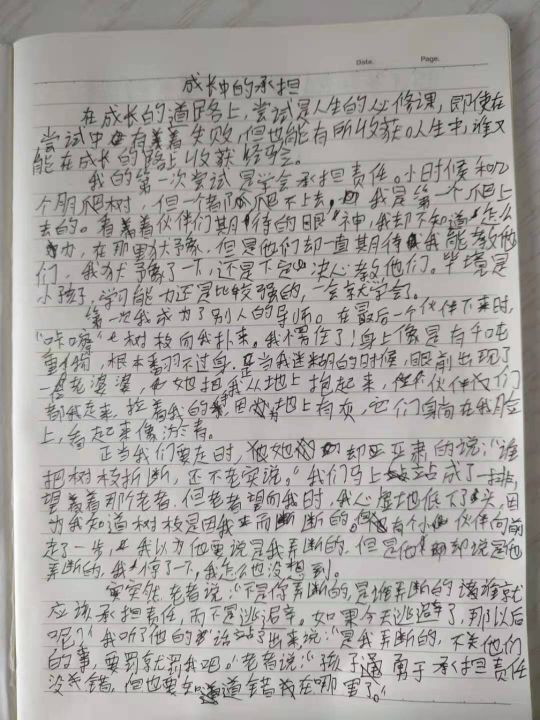 Date. Page.
成长中的承担
在成长的道路上，尝试是人生的必修课，即使在
尝试中有着失败，但也能有所收获。人生中，谁又
能在成长的路上收获经验。
我的第一次尝试是学会承担责任。小时候和几
个朋爬树，但一都爬不上去，我是第一个爬上
去的。看着伙伴们期待的眼神，我却不知道怎么
办，在那里犹豫，但是他们却一直期待我能教他
们，我犹豫了一下，还是下定决心教他们。毕竟是
小孩子，学习能力还是比较强的，一会就学会了。
第一次我成了别人的导师。在最后一个伙伴下来时，
“咔嚓”树枝向我扑来。我愣住了！身上像是有千吨
重物，根本翻不过身。正当我迷糊的时候，眼前出现了
老婆婆，她把我从地上抱起来，伙伴们
都跑走来，拉着我的，因地上有灰，它们身尚在我脸
上，看起来像淤青。
正当我们要走时，她却严肃的说：“谁
把树枝折断，还不老实说。”我们马上站成了一排，
望着那个老者，但老者望向我时，我心虚地低下了头，因
为我知道树枝是因我而断的。有个小伙伴向前
走了一步，我以为他要说是我弄断的，但是他却说是他
弄断的，我停了一下，我怎么也没想到。
突然，老者说：“不是你弄断的，是谁弄断的谁就
应该承担责任，而不是逃避。如果今天逃避了，那以后
呢？”我听了他的话站了出来说：“是我弄断的，不关他们
的事，要罚就罚我吧。”老者说：“孩子勇于承担责任
没错，但也要知道错在哪里了。”